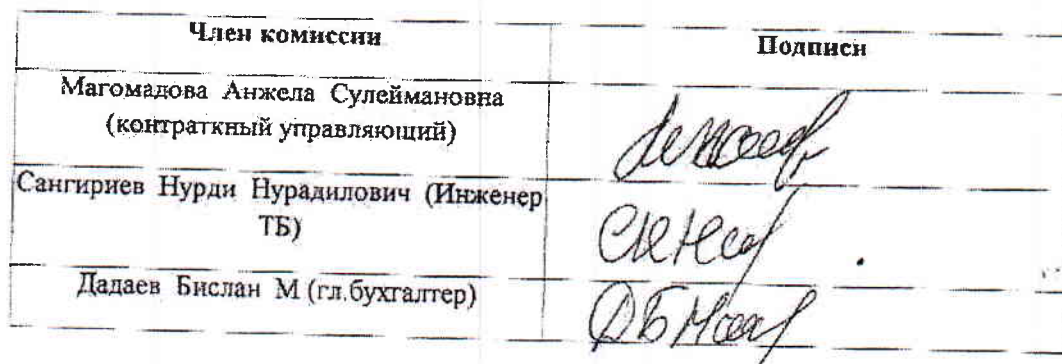 Член комиссии
Подписи
Магомадова Анжела Сулеймановна
(контраткный управляющий)
Сангириев Нурди Нурадилович (Инженер
ТБ)
Дадаев Бислан М (гл.бухгалтер)